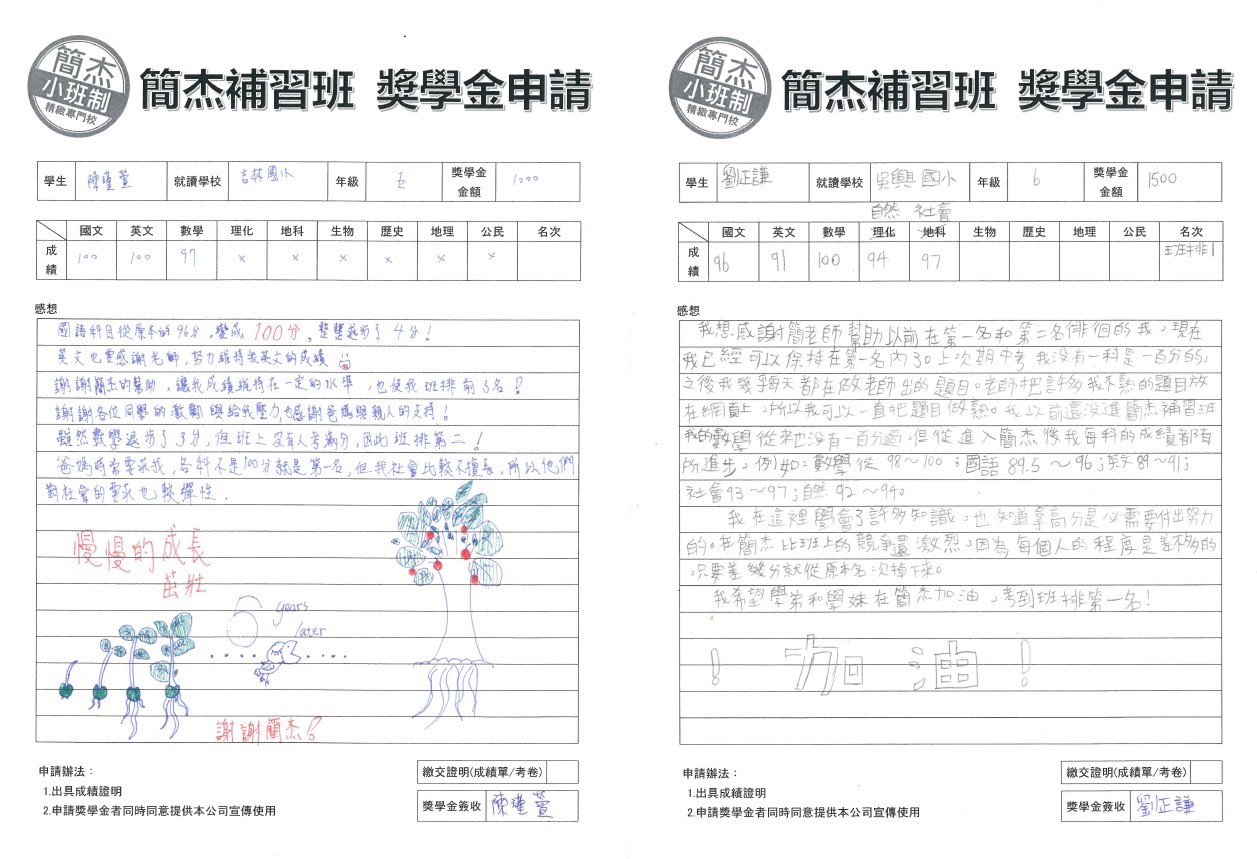 簡杰
小班制
精緻專門校
簡杰補習班 獎學金申請
學生 陳瑾萱 就讀學校 吉林國小 年級 五 獎學金金額 1000
國文 英文 數學 理化 地科 生物 歷史 地理 公民 名次
成績 100 100 97 x x x x x x
感想
國語科目從原本的96分,變成100分,整整進步了4分!
英文也要感謝老師,努力維持我英文的成績
謝謝簡杰的幫助,讓我成績維持在一定的水準,也使我班排前3名!
謝謝各位同學的激勵與給我壓力也感謝爸媽與親人的支持!
雖然數學退步了3分,但班上沒有人考滿分,因此班排第二!
爸媽時常要求我,各科不是100分就是第一名,但我社會比較不擅長,所以他們
對社會的要求也較彈性.
慢慢的成長
茁壯
5 years
later
謝謝簡杰!
申請辦法:
1.出具成績證明
2.申請獎學金者同時同意提供本公司宣傳使用
繳交證明(成績單/考卷)
獎學金簽收 陳瑾萱
簡杰
小班制
精緻專門校
簡杰補習班 獎學金申請
學生 劉正謙 就讀學校 吳興國小 年級 6 獎學金金額 1500
自然 社會
國文 英文 數學 理化 地科 生物 歷史 地理 公民 名次
成績 96 91 100 94 97 班排1
感想
我想感謝簡老師幫助以前在第一名和第二名徘徊的我,現在
我已經可以保持在第一名內了。上次期中考我沒有一科是一百分的,
之後我幾乎天都在做老師出的題目。老師把許多我不熟的題目放
在網頁上,所以我可以一直把題目做熟。我以前還沒進簡杰補習班
我的數學從來也沒有一百分過,但從進入簡杰後我每科的成績都有
所進步。例如:數學從98~100;國語89.5~96;英文89~91;
社會93~97;自然92~94。
我在這裡學會了許多知識,也知道拿高分是必需要付出努力
的。在簡杰比班上的競爭還激烈,因為每個人的程度是差不多的
,只要差幾分就從原本名次掉下來。
我希望學弟和學妹在簡杰加油,考到班排第一名!
! 加油 !
申請辦法:
1.出具成績證明
2.申請獎學金者同時同意提供本公司宣傳使用
繳交證明(成績單/考卷)
獎學金簽收 劉正謙